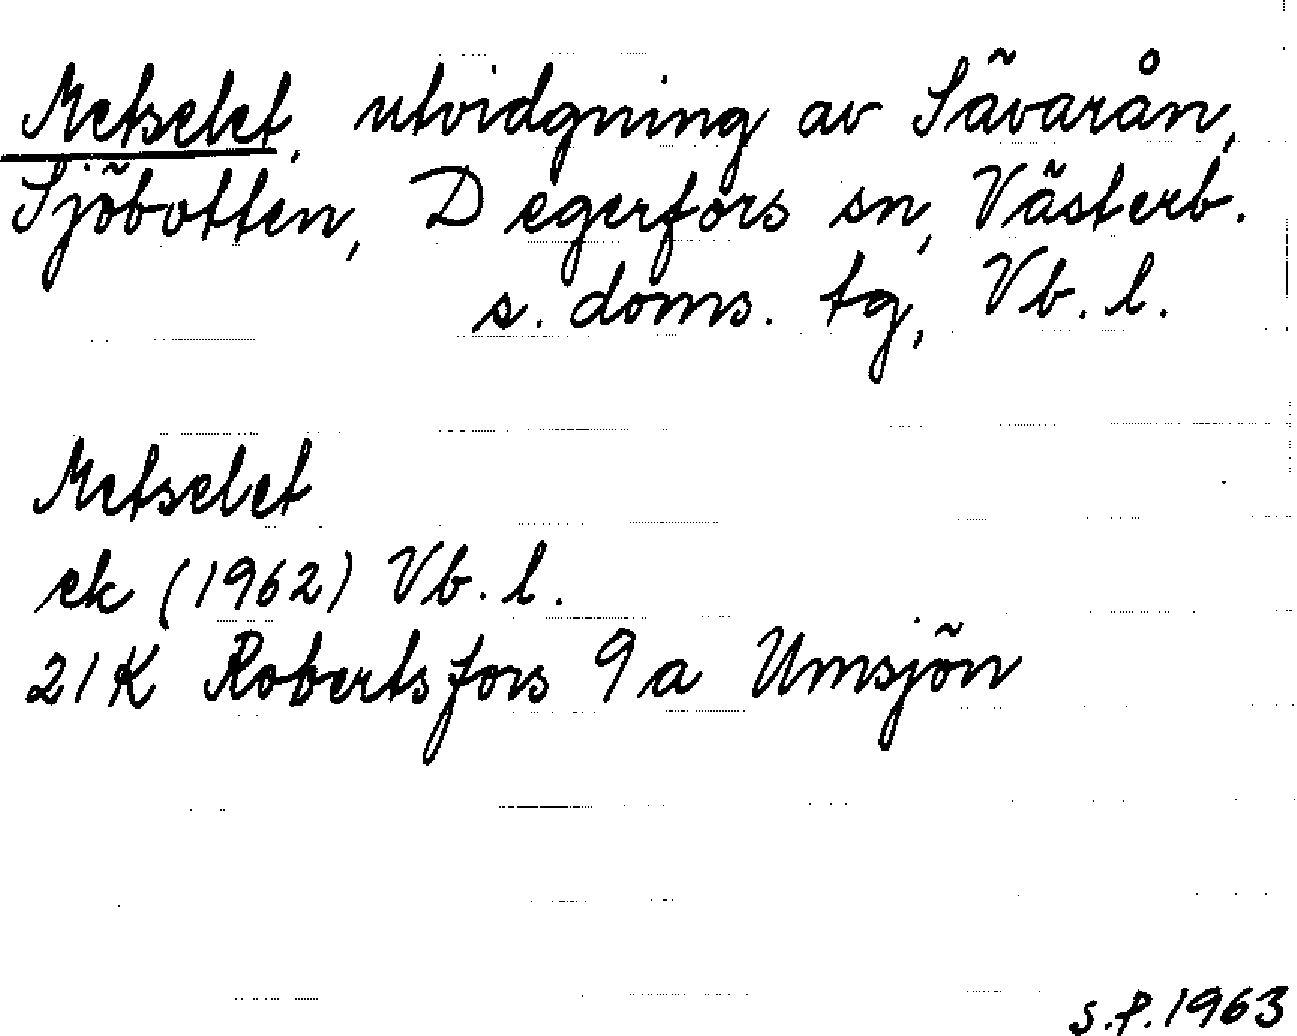 Metselet, utvidgning av Sävarån,
Sjöbotten, Degerfors sn, Västerb.
s. doms. tg, Vb. l.
Metselet
ek (1962) Vb. l.
21K Robertsfors 9a Umsjön
s.f. 1963